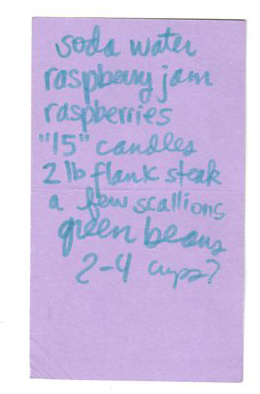 soda water
raspberry jam
raspberries
"15" candles
2 lb flank steak
a few scallions
green beans
2-4 cups?